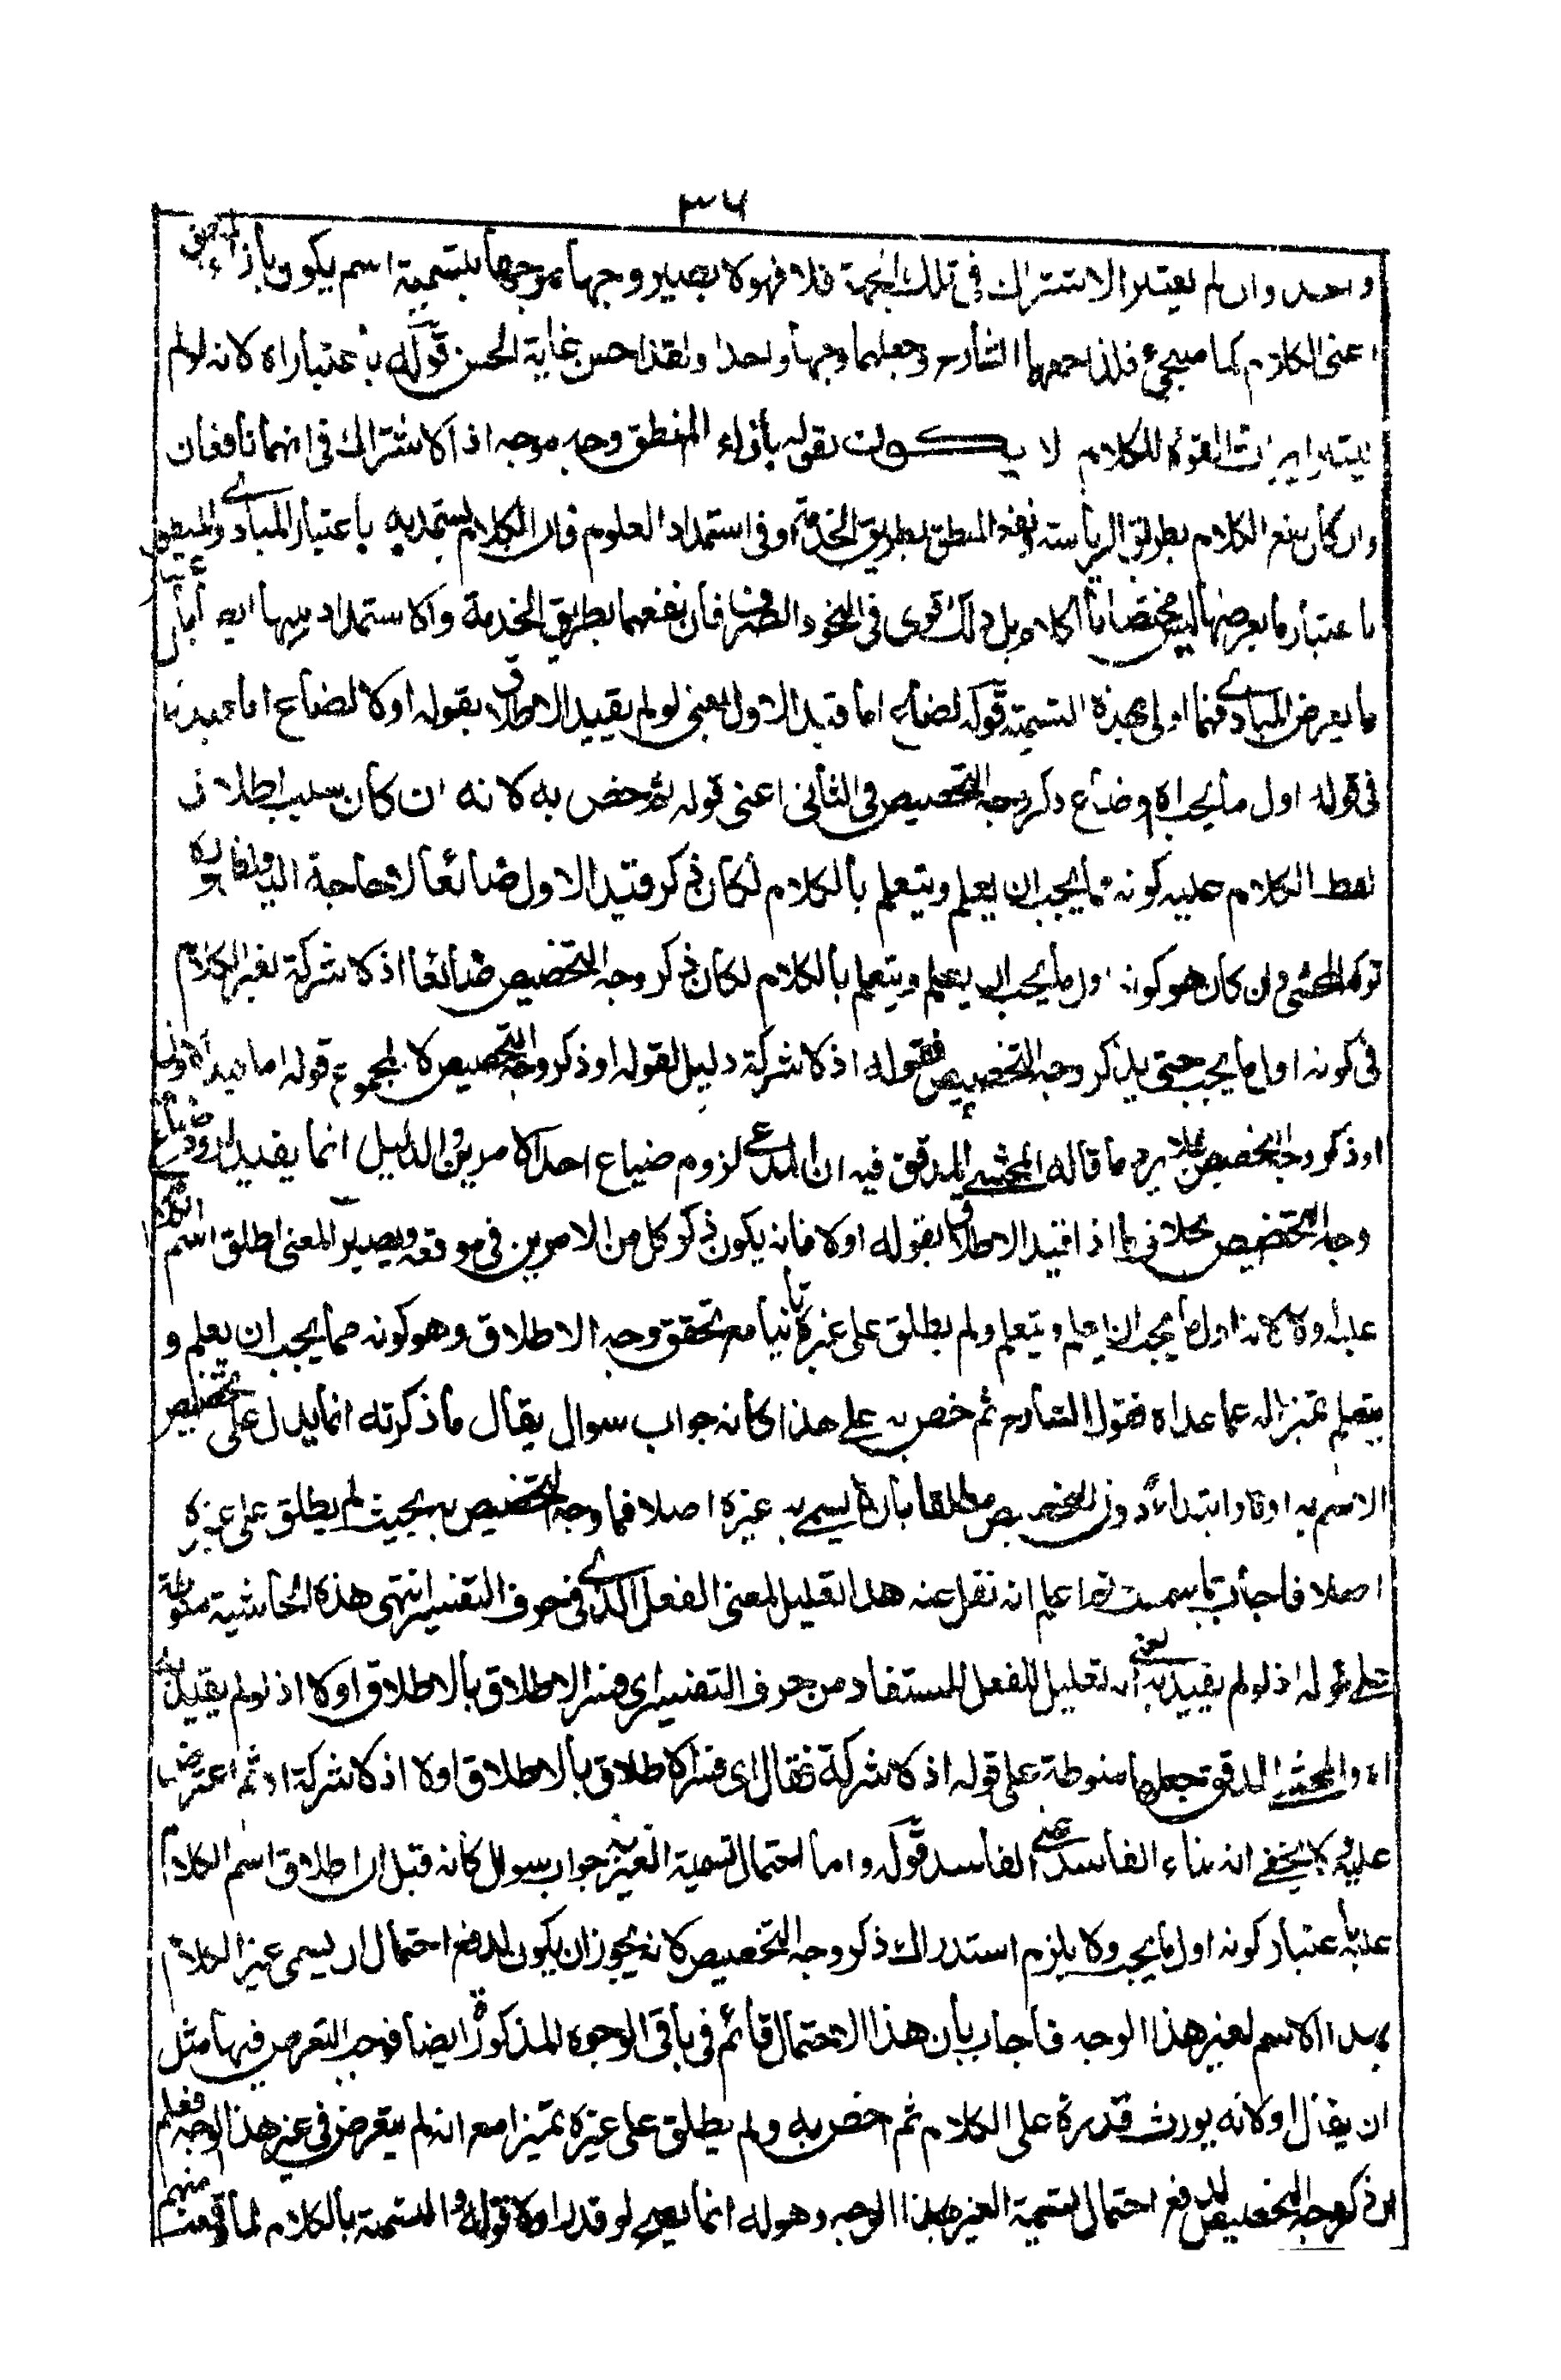 ٣٦
واحد وان لم يعتبر الاشتراك فى تلك الجهة فلا فهو لا يصير وجها موجها بتسمية اسم يكون بازاء المنطق
اعنى الكلام كما سيجئ فلذا جمعهما الشارح وجعلهما وجها واحدا ولقد احسن غاية الحسن قوله باعتباراه لانه لو لم
القوة للكلام لا يكون بقوله بازاء المنطق وجه موجه اذ الاشتراك فى انهما نافعان
وان كان نفع الكلام بطريق الرياسة ونفع المنطق بطريق الخدمة او فى استمداد العلوم فان الكلام يستمد به باعتبار المبادى والمنطق
باعتبار ما يعرضها ليس مختصا بالكلام بل ذلك قوى فى النحو والصرف فان نفعهما بطريق الخدمة والاستمداد منهما ايضا باعتبار
ما يعرض المبادى فهما اولى بهذه التسمية قوله لضاع اما قيد الاول يعنى لو لم يقيد الاطلاق بقوله اولا لضاع اما قيد
فى قوله اول ما يجب اه وضاع ذكر وجه التخصيص فى الثانى اعنى قوله ثم خص به لانه ان كان سبب اطلاق
لفظ الكلام عليه كونه مما يجب ان يعلم ويتعلم بالكلام لكان ذكر قيد الاول ضائعا لا حاجة اليه
تركه المحشى وان كان هو كونه اول ما يجب ان يعلم ويتعلم بالكلام لكان ذكر وجه التخصيص ضائعا اذ لا شركة لغير الكلام
فى كونه اول ما يجب حتى يذكر وجه التخصيص فقوله اذ لا شركة دليل لقوله او ذكر وجه التخصيص لا لمجموع قوله اما قيد الاول
او ذكر وجه التخصيص فلا يرد ما قاله المحشى المدقق فيه ان المدعى لزوم ضياع احد الامرين والدليل انما يفيد ضياع
وجه التخصيص بخلاف ما اذا قيد الاطلاق بقوله اولا فانه يكون ذكر كل من الامرين فى موقعه ويصير المعنى اطلق اسم الكلام
عليه اولا لانه اول ما يجب ان يعلم ويتعلم ولم يطلق على غيره ثانيا مع تحقق وجه الاطلاق وهو كونه مما يجب ان يعلم و
يتعلم تميزا له عما عداه فقول الشارح ثم خص به على هذا كانه جواب سوال يقال ما ذكرته انما يدل على تخصيص
الاسم به اولا وابتداء دون التخصيص مطلقا بان لا يسمى به غيره اصلا فما وجه التخصيص به بحيث لم يطلق على غيره
اصلا فاجاب اعلم انه نقل عنه هذا تعليل لمعنى الفعل الذى فى حرف التفسير انتهى هذه الحاشية منوطة
على قوله اذ لو لم يقيد به يعنى انه تعليل للفعل المستفاد من حرف التفسير اى فسر الاطلاق بالاطلاق اولا اذ لو لم يقيد به
اه والمحشى المدقق جعلها منوطة على قوله اذ لا شركة فقال اى فسر الاطلاق بالاطلاق اولا اذ لا شركة اه ثم اعترض
عليه ولا يخفى انه بناء الفاسد على الفاسد قوله واما احتمال تسمية الغير به جواب سوال كانه قيل ان اطلاق اسم الكلام
عليه باعتبار كونه اول ما يجب ولا يلزم استدراك ذكر وجه التخصيص لانه يجوز ان يكون لدفع احتمال ان يسمى غير الكلام
بهذا الاسم لغير هذا الوجه فاجاب بان هذا الاحتمال قائم فى باقى الوجوه المذكورة ايضا فوجب التعرض فيها مثل
ان يقال اولا لانه يورث قدرة على الكلام ثم خص به ولم يطلق على غيره تميزا مع انه لم يتعرض فى غير هذا الوجه فعلم
ان ذكر وجه التخصيص لدفع احتمال تسمية الغير بهذا الوجه وهو له انما يصح لو قدر اولا قوله والتسمية بالكلام لما وقعت منهم